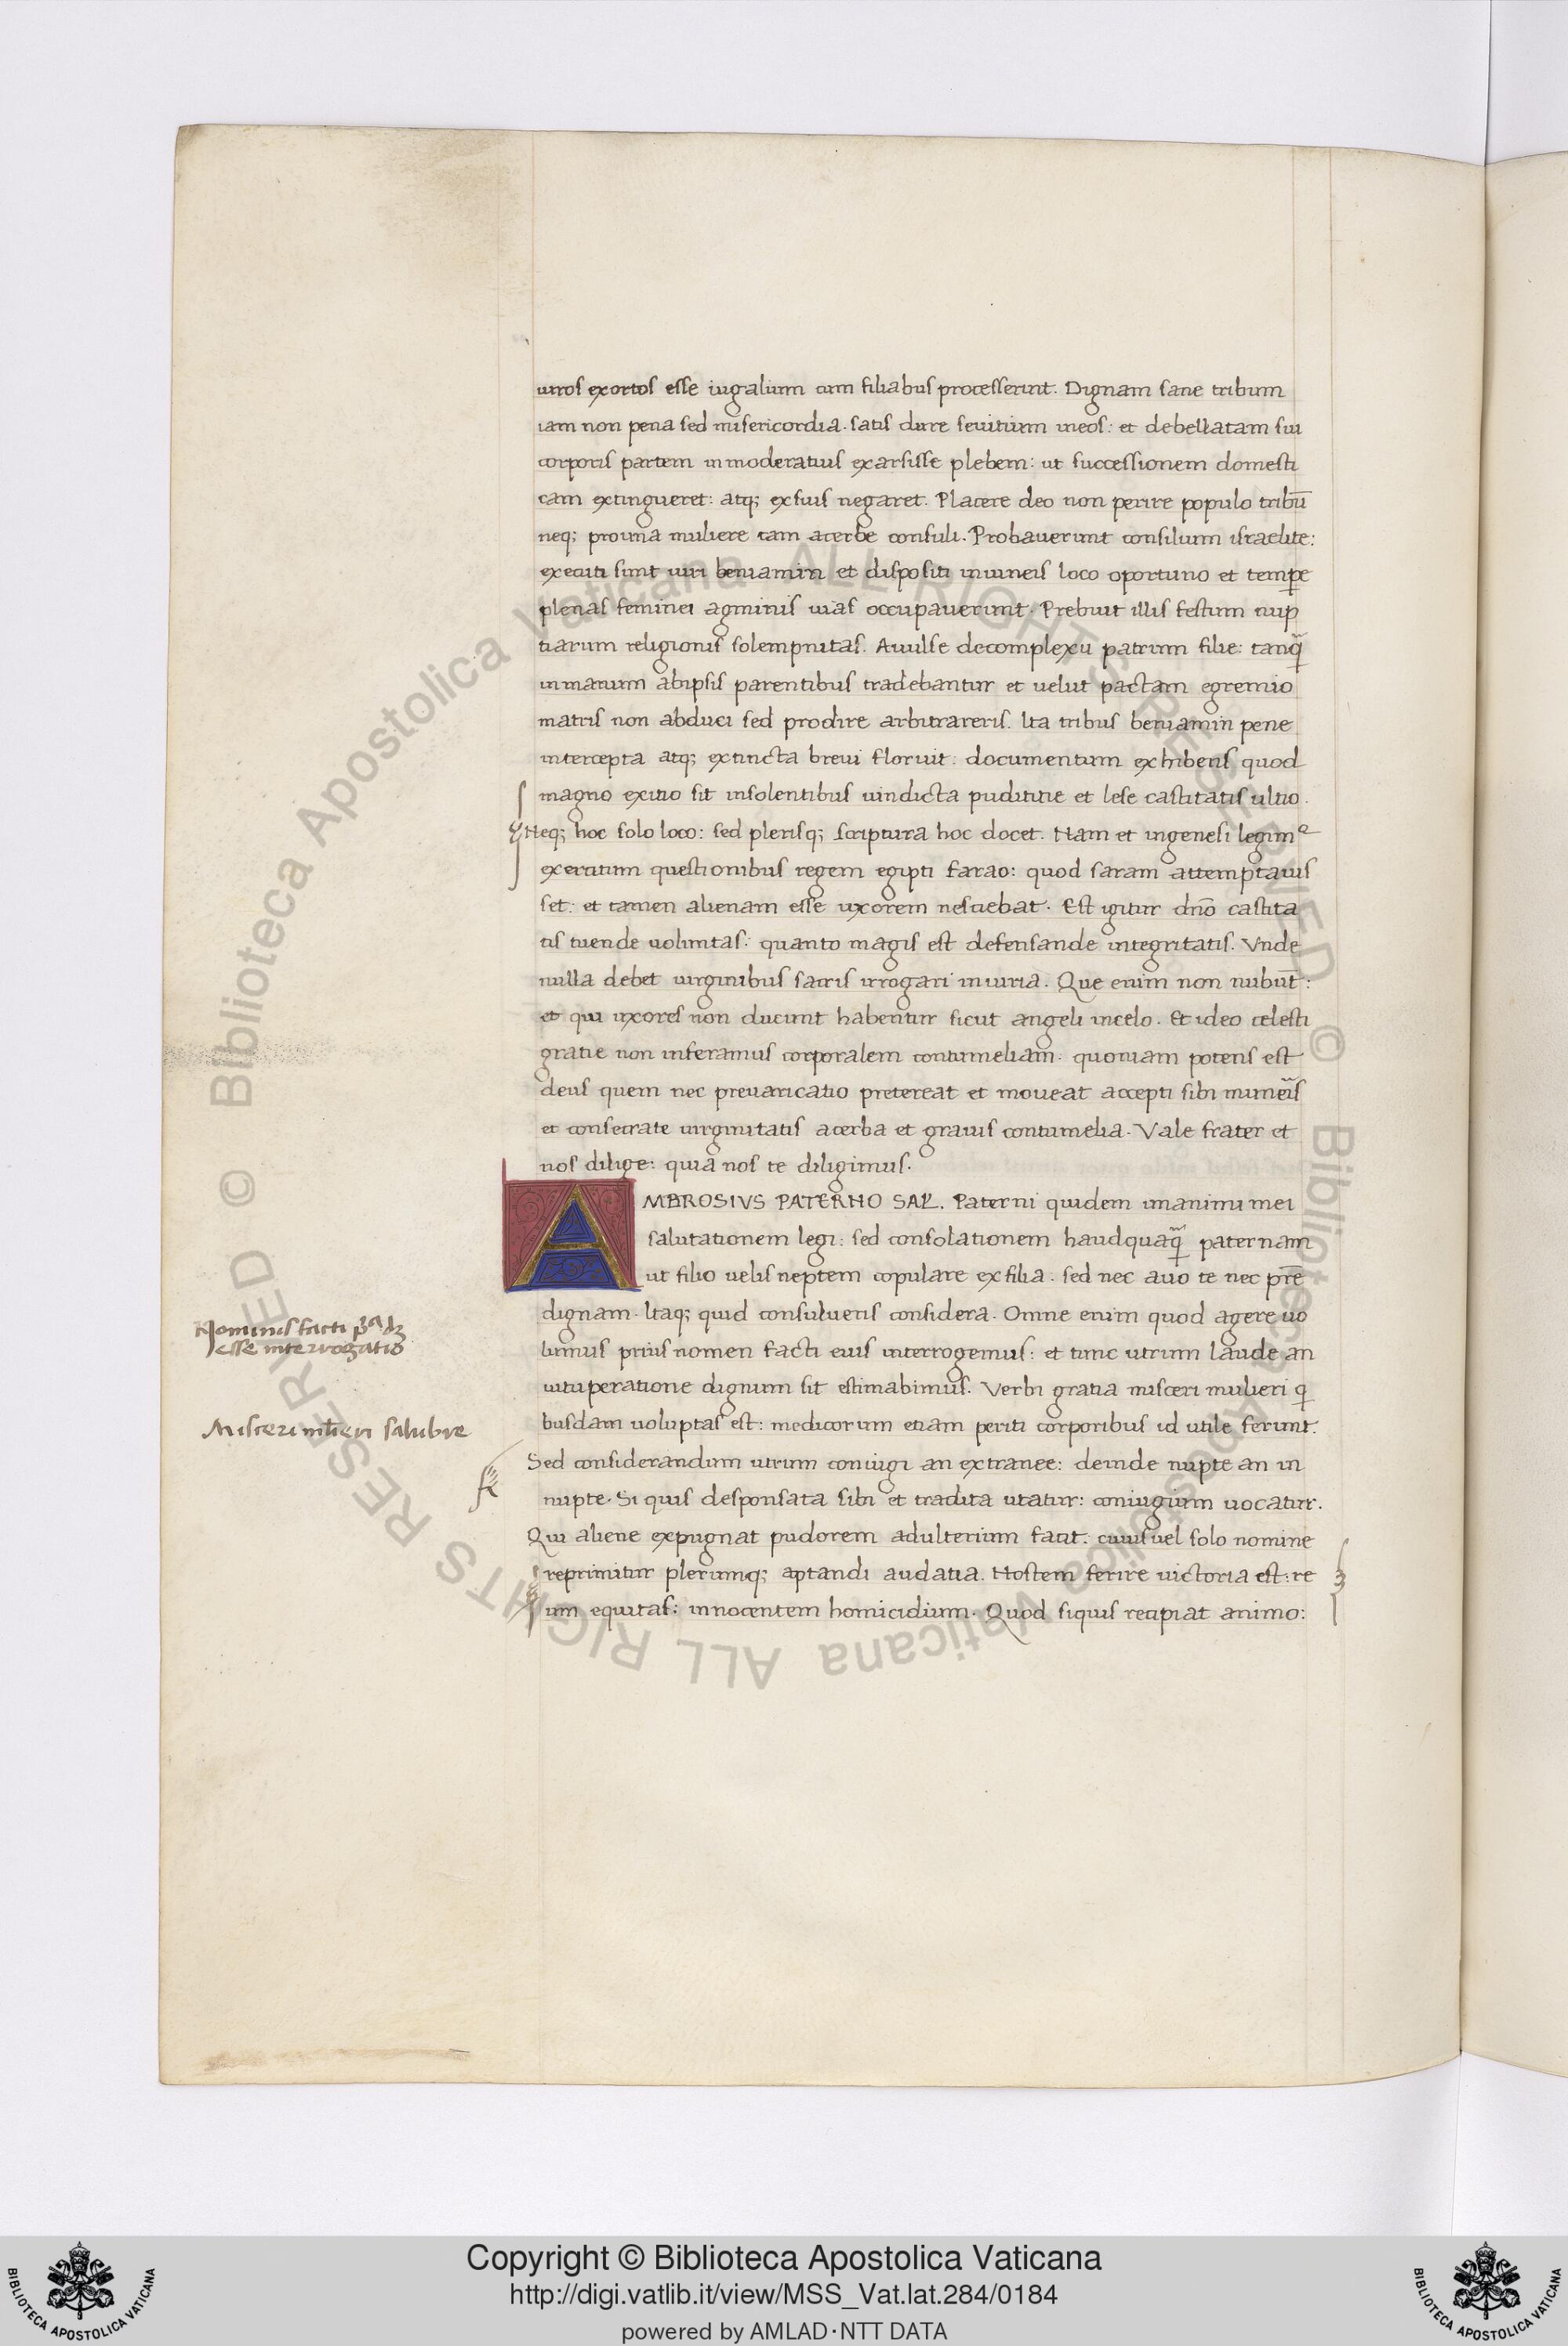 uiros exortos esse iugalium cum filiabus processerint. Dignam sane tribum
iam non pena sed misericordia. satis dure seuitum ineos: et debellatam sui
corporis partem inmoderatius exarsisse plebem: ut successionem domesti
cam extingueret: atq; exsuis negaret. Placere deo non perire populo tribū
neq; prouna muliere tam acerbe consuli. Probauerunt consilium israelite:
executi sunt uiri beniamin et dispositi inuineis loco oportuno et tempe
plenas feminei agminis uias occupauerunt. Prebuit illis festum nup
tiarum religionis solempnitas. Auulse decomplexu patrum filie: tanq̃
inmanum abipsis parentibus tradebantur et uelut pactam egremio
matris non abduci sed prodire arbitrareris. Ita tribus beniamin pene
intercepta atq; extincta breui floruit: documentum exhibens quod
magno exitio sit insolentibus uindicta pudititie et lese castitatis ultio.
Neq; hoc solo loco: sed plerisq; scriptura hoc docet. Nam et ingenesi legimꝰ
exercitum questionibus regem egipti farao: quod saram attemptauis
set: et tamen alienam esse uxorem nesciebat. Est igitur dn̄o castita
tis tuende uoluntas: quanto magis est defensande integritatis. Vnde
nulla debet uirginibus sacris irrogari iniuria. Que enim non nubūt:
et qui uxores non ducunt habentur sicut angeli incelo. Et ideo celesti
gratie non inferamus corporalem contumeliam: quoniam potens est
deus quem nec preuaricatio pretereat et moueat accepti sibi munẽis
et consecrate uirginitatis acerba et grauis contumelia. Vale frater et
nos dilige: quia nos te diligimus.
AMBROSIVS PATERNO SAL̄. Paterni quidem unanimi mei
salutationem legi: sed consolationem haudquaq̃ paternam
ut filio uelis neptem copulare exfilia: sed nec auo te nec pr̄e
dignam. Itaq; quid consulueris considera. Omne enim quod agere uo
lumus prius nomen facti eius interrogemus: et tunc utrum laude an
uituperatione dignum sit estimabimus. Verbi gratia misceri mulieri q
busdam uoluptas est: medicorum etiam periti corporibus id utile ferunt.
Sed considerandum utrum coniugi an extranee: deinde nupte an in
nupte. Si quis desponsata sibi et tradita utatur: coniugium uocatur.
Qui aliene expugnat pudorem adulterium facit: cuius uel solo nomine
reprimitur plerumq; aptandi audatia. Hostem ferire uictoria est: re
um equitas: innocentem homicidium. Quod siquis recipiat animo:
Nominis facti
esse interrogatio
Misceri mli̅eri salubre
Copyright © Biblioteca Apostolica Vaticana
http://digi.vatlib.it/view/MSS_Vat.lat.284/0184
powered by AMLAD·NTT DATA
BIBLIOTECA APOSTOLICA VATICANA
BIBLIOTECA APOSTOLICA VATICANA
© Biblioteca Apostolica Vaticana ALL RIGHTS RESERVED
© Biblioteca Apostolica Vaticana ALL RIGHTS RESERVED